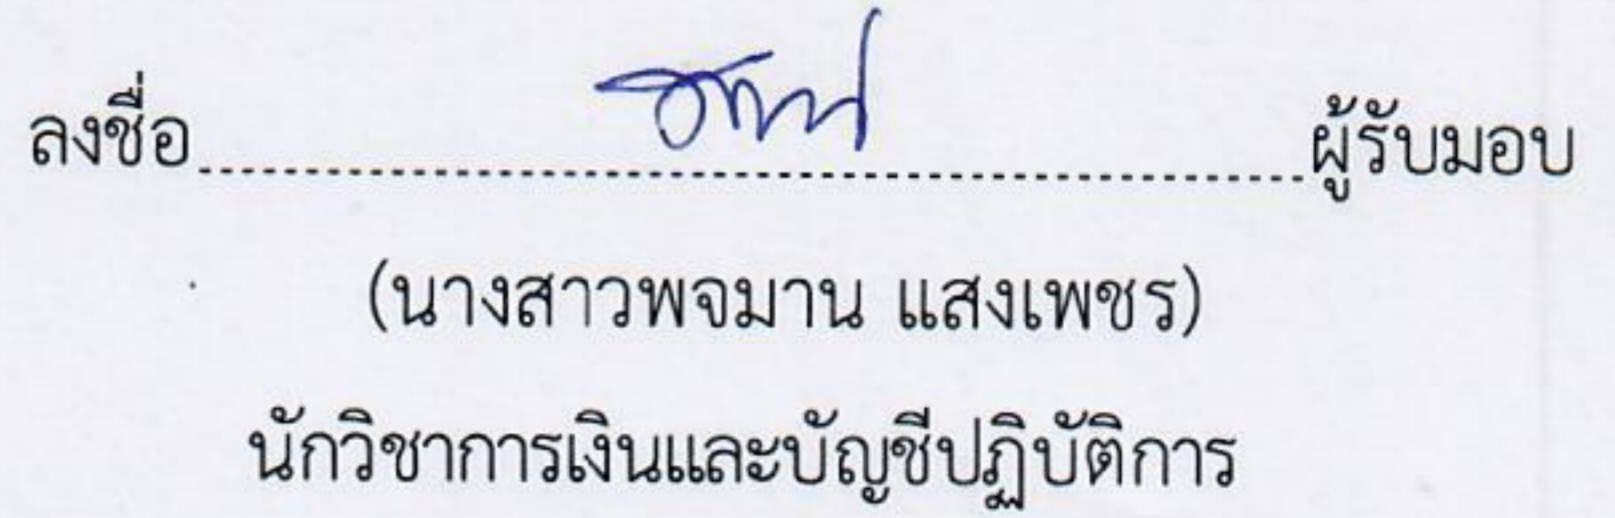 ลงชื่อ........................................................ผู้รับมอบ
(นางสาวพจมาน แสงเพชร)
นักวิชาการเงินและบัญชีปฏิบัติการ